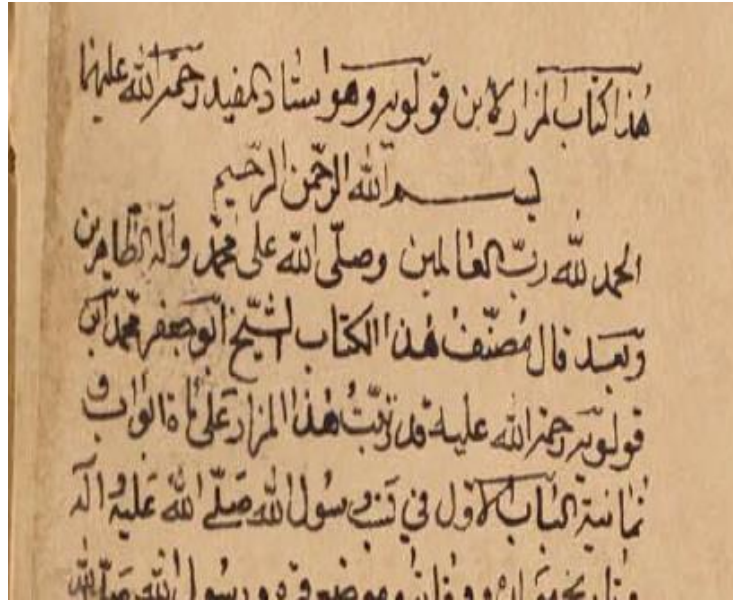 هذا كتاب المزار لابن قولويه وهو استاد المفيد رحمة الله عليهما
بسم الله الرحمن الرحيم
الحمد لله رب العالمين وصلى الله على محمد وآله الطاهرين
وبعد قال مصنف هذا الكتاب الشيخ ابو جعفر محمد ابن
قولويه رحمة الله عليه قد رتبت هذا المزار على مأة ابواب و
ثمانية الباب الاول في نسب رسول الله صلى الله عليه وآله
وتاريخ مولده ووفاته وموضع قبره رسول الله صلى الله